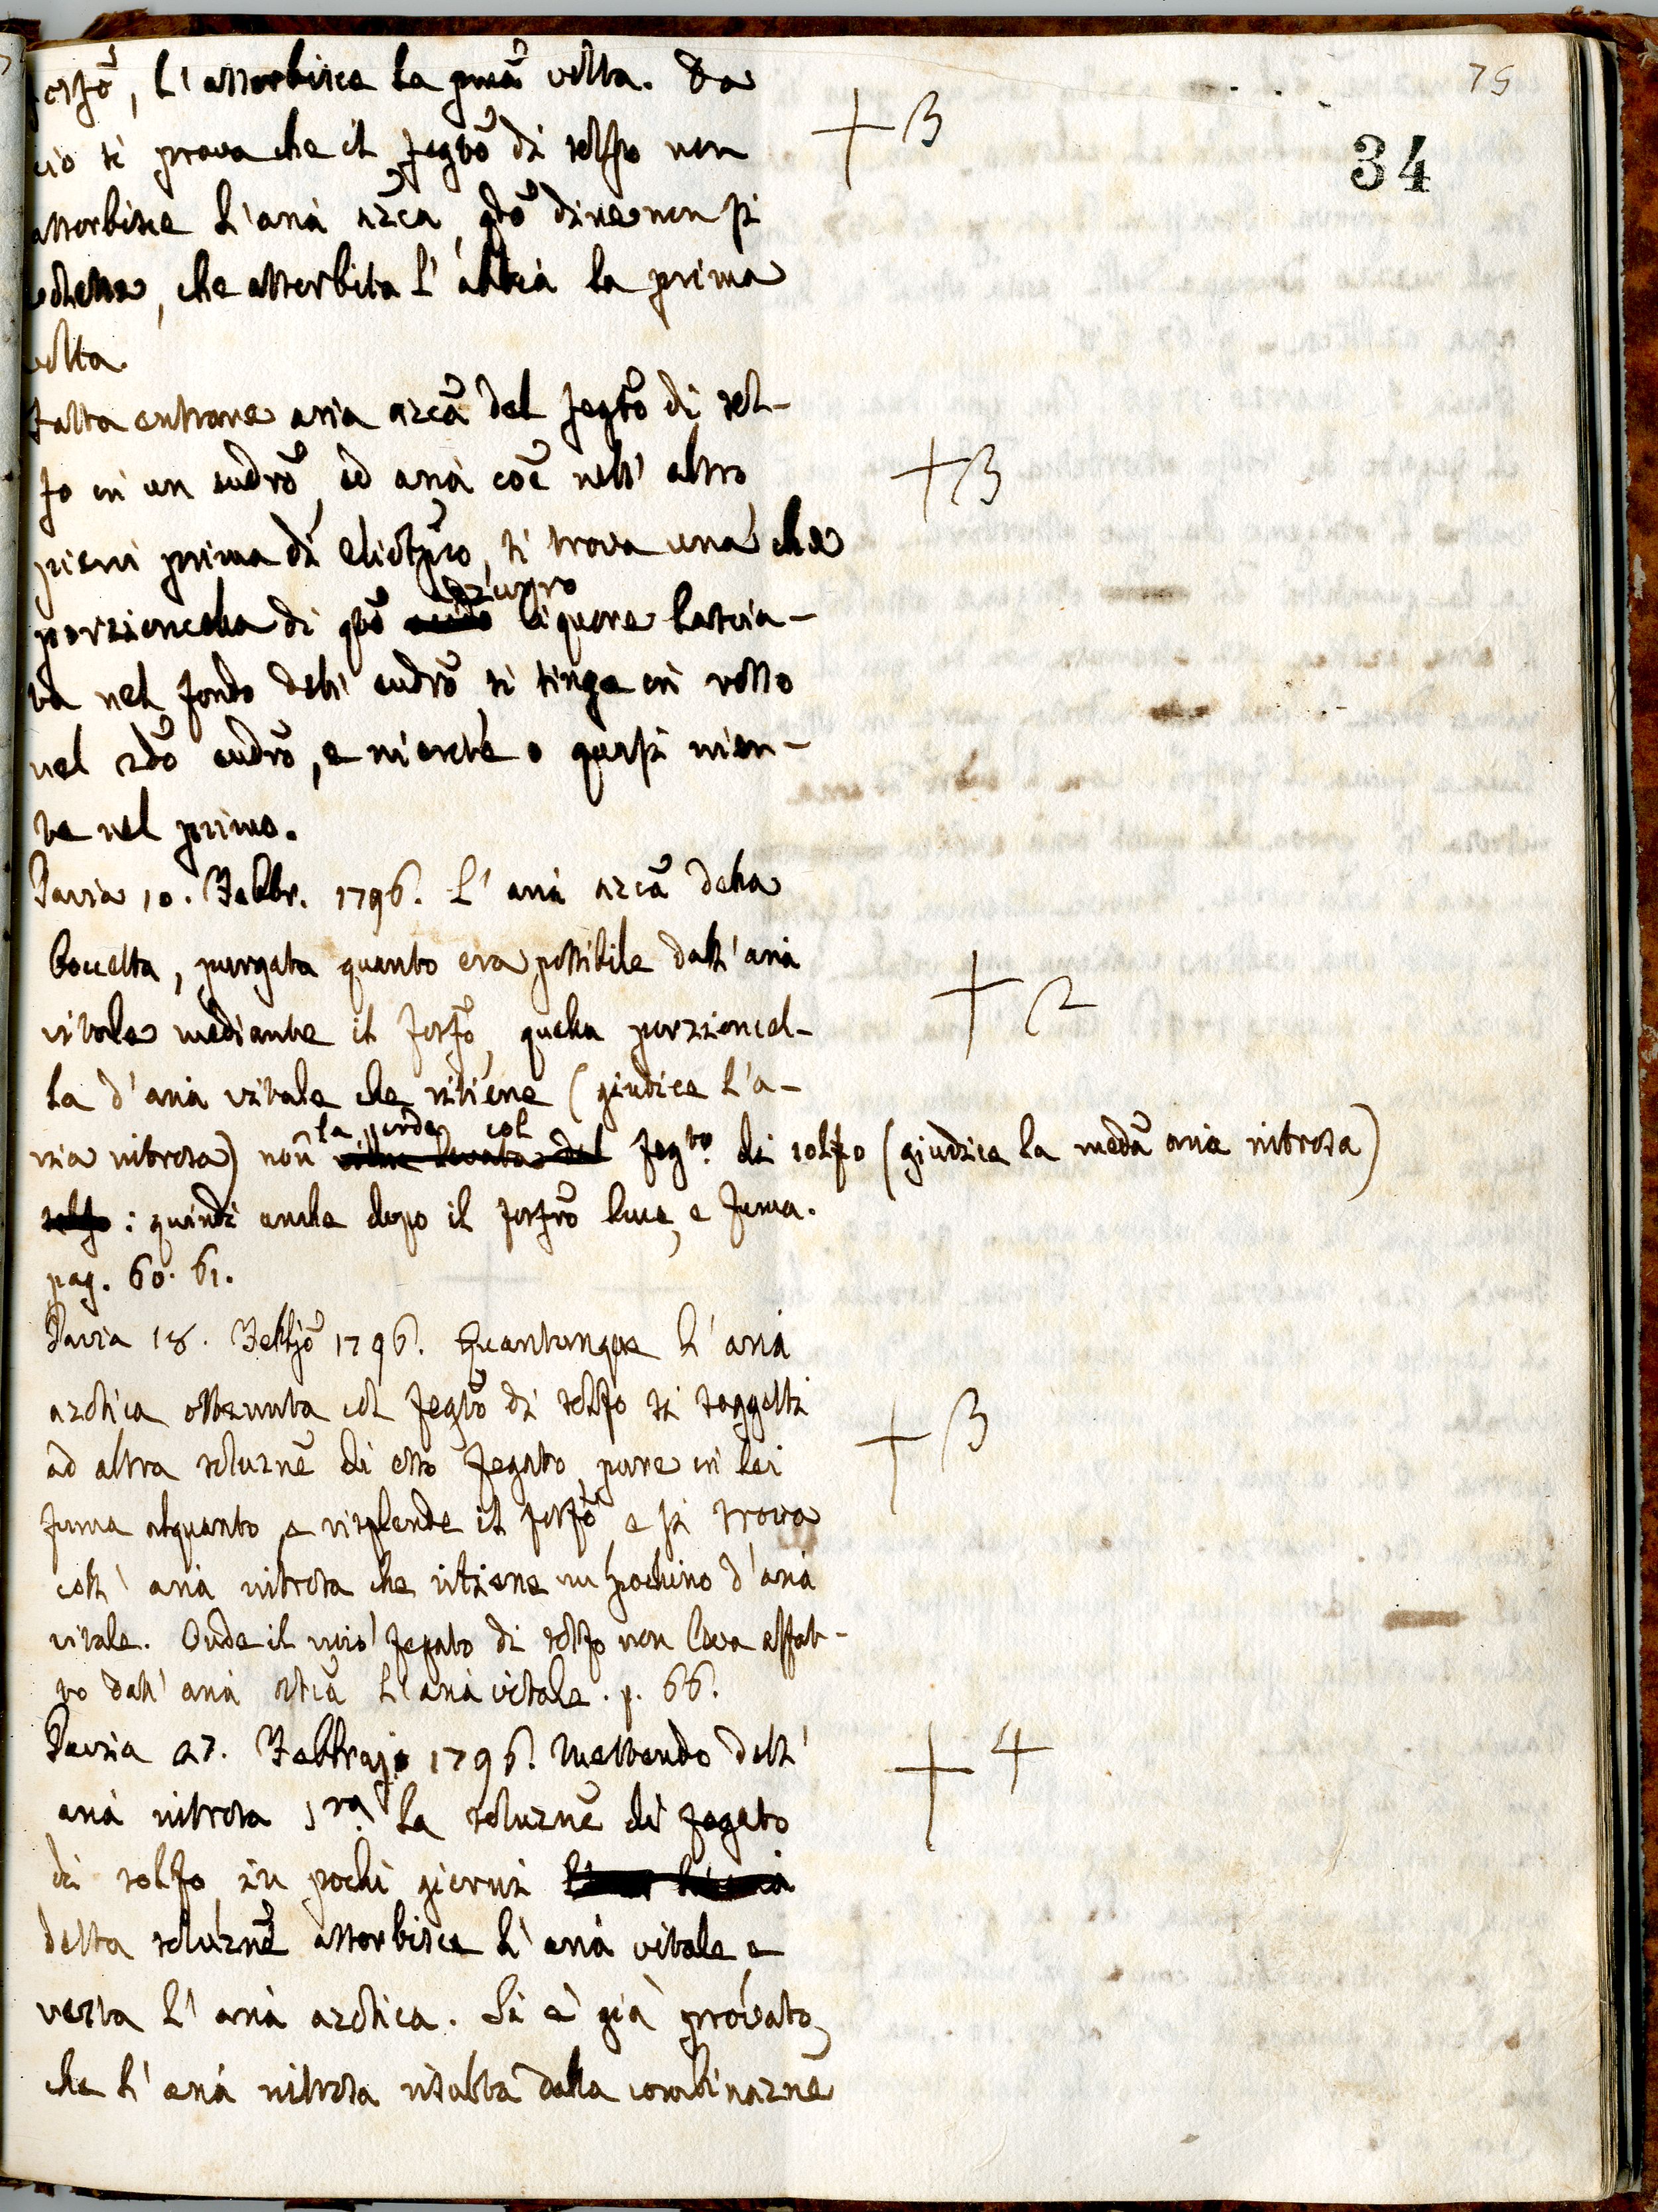 75
34
fosfō, l'assorbisce la pmā volta. Da
ciò si prova che il fegtō di solfo non
assorbisce l'aria azcā, qdō dire non si
volesse, che assorbita l'abbia la prima
volta.
+3
Fatta entrare aria azcā del fegtō di sol-
fo in un eudrō, ed aria coē nell'altro
pieni prima di eliotro, si trova una che
porzioncella di qtō azzurro liquore lascia-
ta nel fondo dell'eudrō si tinge in rosso
nel 2dō eudrō, e niente o quasi nien-
te nel primo.
+3
Pavia 10. Febbr. 1796. L'aria azcā della
boccetta, purgata quanto era possibile dall'aria
vitale mediante il fosfō, quella porzioncel-
la d'aria vitale che ritiene (giudice l'a-
ria nitrosa) non la perde col feg.to di solfo (giudice la medā aria nitrosa)
: quindi anche dopo il fosfrō luce, e fuma.
pag. 60. 61.
+2
Pavia 18. Febbjō 1796. Quantunque l'aria
azotica ottenuta col fegtō di solfo si soggetti
ad altra soluznē di esso fegato, pure in lei
fuma alquanto e risplende il fosfō, e si trova
coll'aria nitrosa che ritiene un pochino d'aria
vitale. Onde il mio fegato di solfo non leva affat-
to dall'aria azticā l'aria vitale. p. 66.
+3
Pavia 27. Febbrajo 1796. Mettendo dell'
aria nitrosa s.ra la soluznē di fegato
di solfo, in pochi giorni
detta soluznē assorbisce l'aria vitale e
resta l'aria azotica. Si è già provato,
che l'aria nitrosa risulta dalla combinaznē
+4